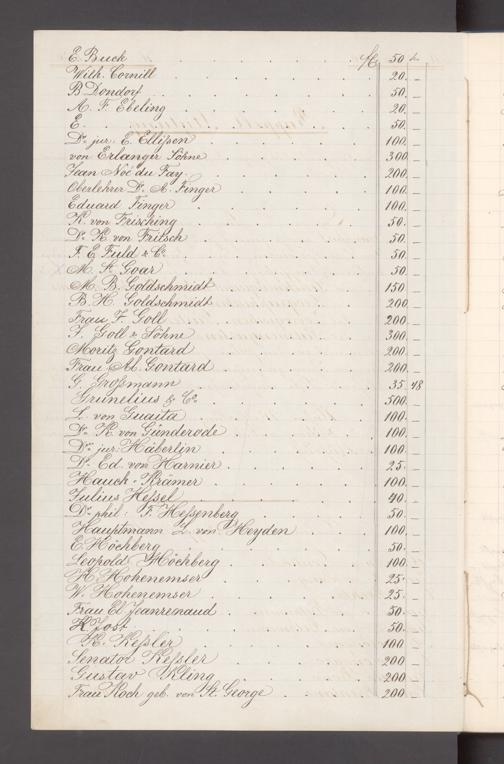 E. Buck . . . . . fl. 50 kr
Wilh. Cornill . . . . . 20. –
B Dondorf . . . . . 50. –
A. F. Ebeling . . . . . 20. –
E. . . . . . 50. –
Dr. jur. E. Ellißen . . . . . 100. –
von Erlanger Söhne . . . . . 300. –
Jean Noé du Fay . . . . . 200. –
Oberlehrer Dr. A. Finger . . . . . 100. –
Eduard Finger . . . . . 100. –
R. von Frisching . . . . . 50. –
Dr. K. von Fritsch . . . . . 50. –
F. E. Fuld & Co. . . . . . 50. –
M. St. Goar . . . . . 50. –
M. B. Goldschmidt . . . . . 150 –
B. H. Goldschmidt . . . . . 200 –
Frau F. Goll . . . . . 200. –
J. Goll & Söhne . . . . . 300. –
Moritz Gontard . . . . . 200. –
Frau Al. Gontard . . . . . 200. –
G. Großmann . . . . . 35. 48
Grunelius & Co. . . . . . 500. –
L. von Guaita . . . . . 100. –
Dr. K. von Günderode . . . . . 100. –
Dr. jur. Häberlin . . . . . 100. –
Dr. Ed. von Harnier . . . . . 25. –
Hauck-Krämer . . . . . 100. –
Julius Heßel . . . . . 40. –
Dr. phil. F. Heßenberg . . . . . 50. –
Hauptmann L. von Heyden . . . . . 100. –
E. Höchberg . . . . . 50. –
Leopold Höchberg . . . . . 100. –
H. Hohenemser . . . . . 25. –
W. Hohenemser . . . . . 25. –
Frau El. Jeanrenaud . . . . . 50. –
Jost . . . . . 50. –
H. Keßler . . . . . 100 –
Senator Keßler . . . . . 200 –
Gustav Kling . . . . . 200 –
Frau Koch geb. von St. George . . . . . 200 –